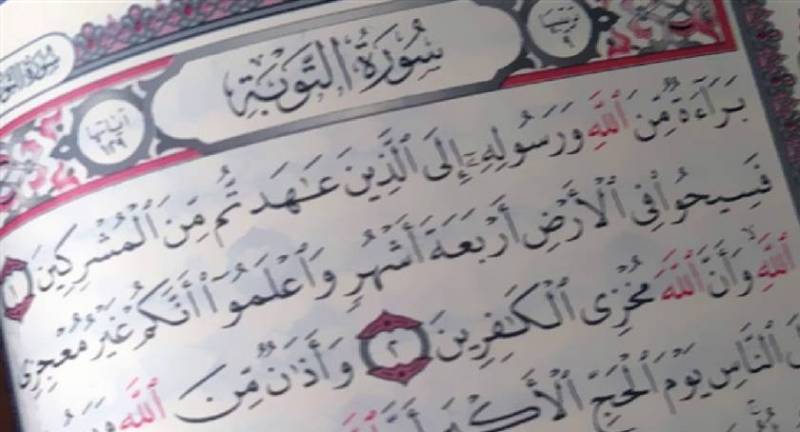 سُورَةُ التَّوْبَةِ
آيَاتُهَا ١٢٩
بَرَآءَةٌ مِّنَ ٱللَّهِ وَرَسُولِهِۦٓ إِلَى ٱلَّذِينَ عَٰهَدتُّم مِّنَ ٱلْمُشْرِكِينَ ١
فَسِيحُوا۟ فِى ٱلْأَرْضِ أَرْبَعَةَ أَشْهُرٍ وَٱعْلَمُوٓا۟ أَنَّكُمْ غَيْرُ مُعْجِزِى
ٱللَّهِ ۙ وَأَنَّ ٱللَّهَ مُخْزِى ٱلْكَٰفِرِينَ ٢ وَأَذَٰنٌ مِّنَ ٱللَّهِ
ٱلنَّاسِ يَوْمَ ٱلْحَجِّ ٱلْأَكْبَرِ أَنَّ ٱللَّهَ